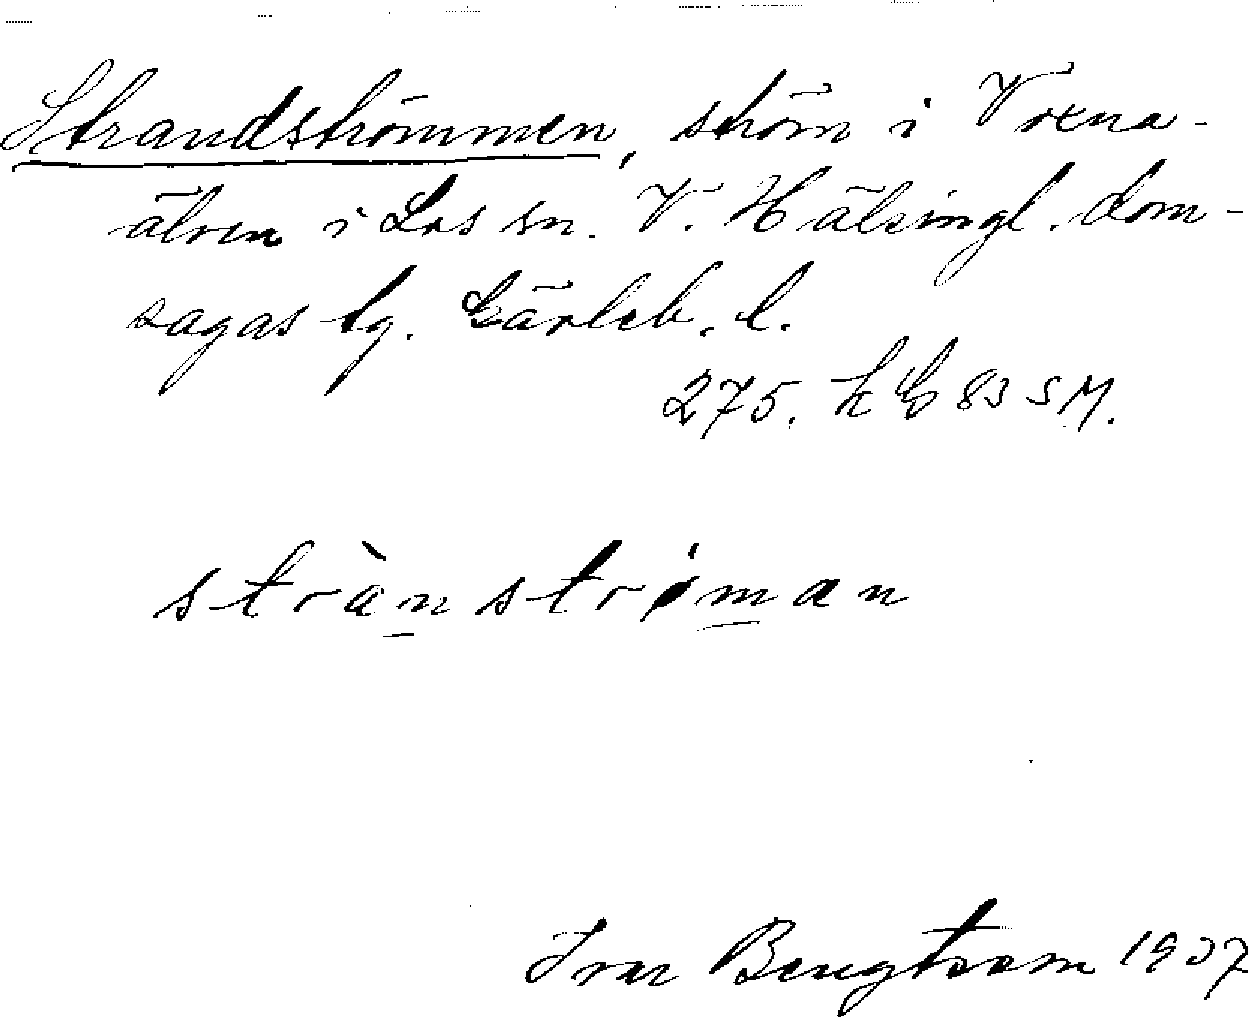 Strandströmmen, ström i Voxna-
älven i Los sn. V. Hälsingl. dom-
sagas tg. Gävleb. l.
275. h G 83 SM.
strànstrøman
Ivar Bengtsson 1907